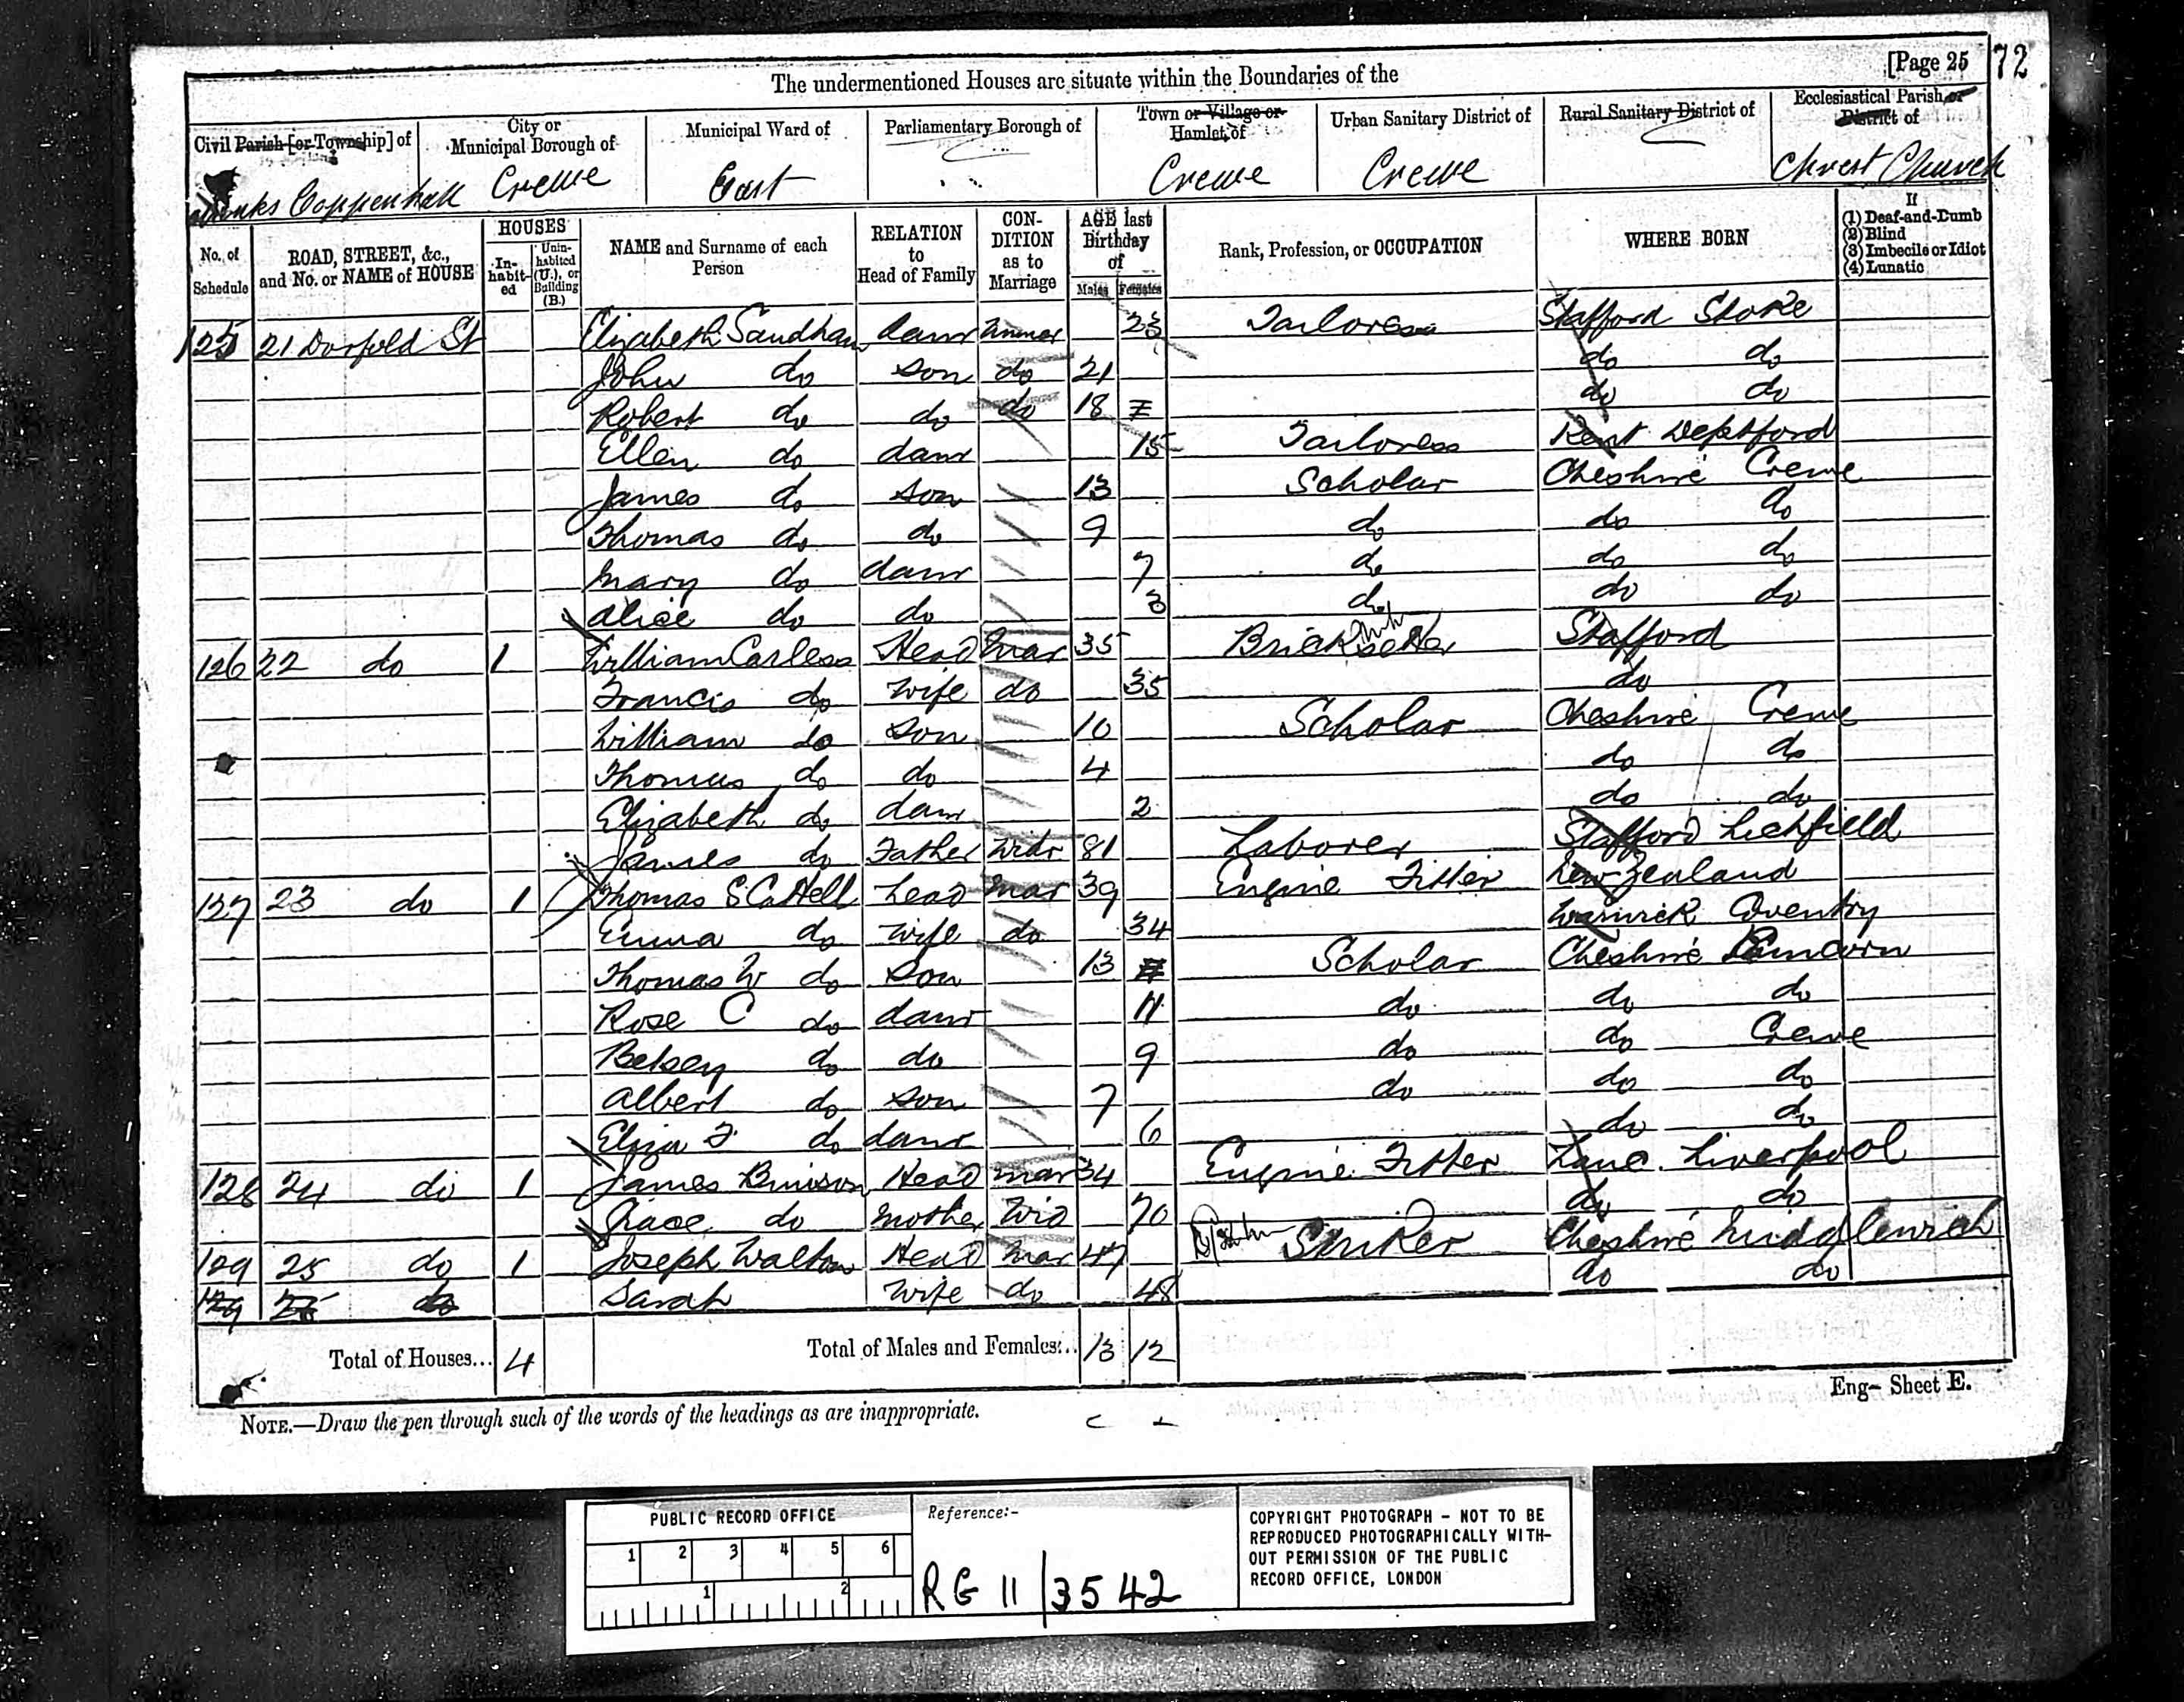 [Page 25 72
The undermentioned Houses are situate within the Boundaries of the
Civil Parish [or Township] of
City or Municipal Borough of
Municipal Ward of
Parliamentary Borough of
Town or Village or Hamlet of
Urban Sanitary District of
Rural Sanitary District of
Ecclesiastical Parish or District of
Monks Coppenhall Crewe East Crewe Crewe Christ Church
No. of Schedule
ROAD, STREET, &c., and No. or NAME of HOUSE
HOUSES
In-habit-ed
Unin-habited (U.), or Building (B.)
NAME and Surname of each Person
RELATION to Head of Family
CON-DITION as to Marriage
AGE last Birthday of
Males Females
Rank, Profession, or OCCUPATION
WHERE BORN
If
(1) Deaf-and-Dumb
(2) Blind
(3) Imbecile or Idiot
(4) Lunatic
125 21 Dorfold St Elizabeth Sandham daur unmar 23 Tailoress Stafford Stoke
John do son do 21 do do
Robert do do do 18 do do
Ellen do daur 15 Tailoress Kent Deptford
James do son 13 Scholar Cheshire Crewe
Thomas do do 9 do do do
Mary do daur 7 do do do
Alice do do 3 do do do
126 22 do 1 William Carless Head Mar 35 Brick setter Stafford
Francis do Wife do 35 do
William do Son 10 Scholar Cheshire Crewe
Thomas do do 4 do do
Elizabeth do daur 2 do do
James do Father Widr 81 Laborer Stafford Lichfield
127 23 do 1 Thomas S Cattell Head Mar 39 Engine Fitter New Zealand
Emma do Wife do 34 Warwick Coventry
Thomas W do Son 13 Scholar Cheshire Runcorn
Rose C do daur 11 do do do
Betsey do do 9 do do Crewe
Albert do son 7 do do do
Eliza F do daur 6 do do
128 24 do 1 James Brinson Head mar 34 Engine Fitter Lanc. Liverpool
Grace do Mother Wid 70 do do
129 25 do 1 Joseph Walton Head Mar 47 Striker Cheshire Middlewich
129 26 do Sarah Wife do 48 do do
Total of Houses... 4 Total of Males and Females... 13 12
Eng- Sheet E.
NOTE.—Draw the pen through such of the words of the headings as are inappropriate.
PUBLIC RECORD OFFICE
1 2 3 4 5 6
1 2
Reference:-
RG 11/3542
COPYRIGHT PHOTOGRAPH - NOT TO BE
REPRODUCED PHOTOGRAPHICALLY WITH-
OUT PERMISSION OF THE PUBLIC
RECORD OFFICE, LONDON